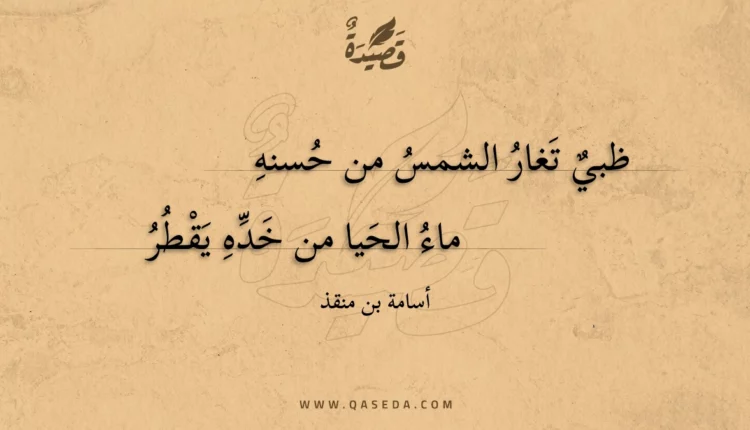 قَصِيدَةٌ
ظبيٌ تَغارُ الشمسُ من حُسنهِ
ماءُ الحَيا من خَدِّهِ يَقْطُرُ
أسامة بن منقذ
WWW.QASEDA.COM